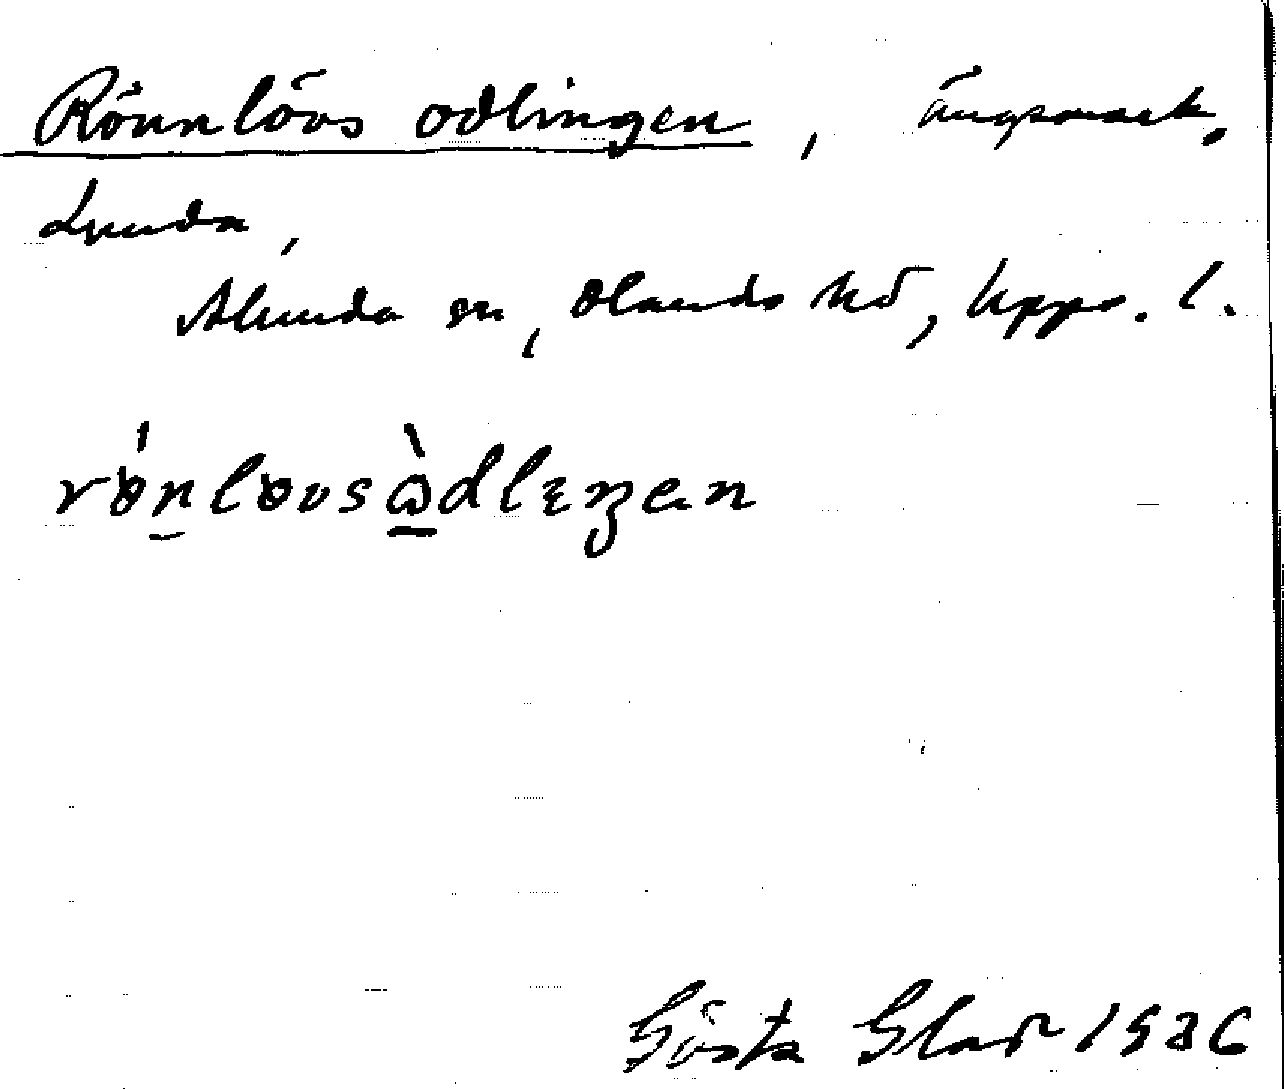 Rönnlövs odlingen, ängsmark,
Lunda,
Alunda sn, Olands hd, Upps. l.
Gösta Glad 1936